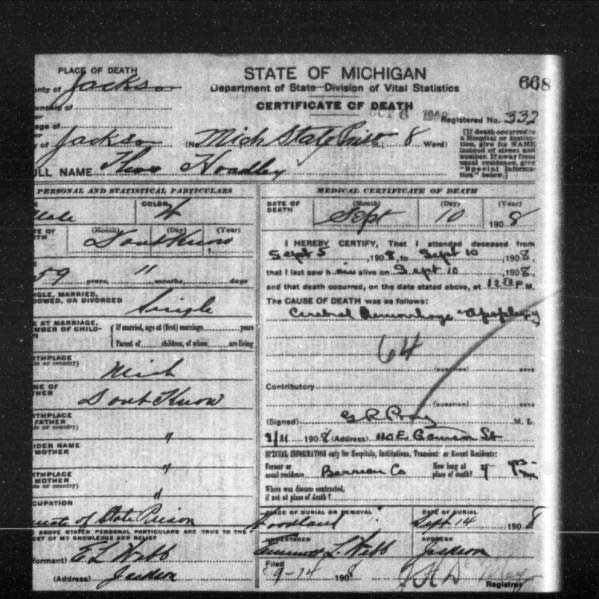 PLACE OF DEATH
STATE OF MICHIGAN
668
Jackson
Department of State—Division of Vital Statistics
CERTIFICATE OF DEATH
Registered No. 332
Jackson (No. Mich State Prison St., 8 Ward)
(If death occurred in a Hospital or Institution, give its NAME instead of street and number. If away from usual residence, give "Special Information" below.)
ULL NAME Theo Hoadley
PERSONAL AND STATISTICAL PARTICULARS
MEDICAL CERTIFICATE OF DEATH
Male COLOR W
DATE OF DEATH (Month) (Day) (Year)
Sept 10 1908
(Month) (Day) (Year)
Dont Know 1
I HEREBY CERTIFY, That I attended deceased from
Sept 5, 1908, to Sept 10, 1908,
that I last saw h alive on Sept 10, 1908,
59 years, 11 months, days
and that death occurred, on the date stated above, at P.M.
NGLE, MARRIED,
DOWED, OR DIVORCED
Single
The CAUSE OF DEATH was as follows:
Cerebral Hemorrhage Apoplexy
64
GE AT MARRIAGE,
MBER OF CHILD-
If married, age at (first) marriage years
Parent of children, of whom are living
RTHPLACE
Mich
(DURATION) DAYS
Contributory
ME OF
THER
Dont Know
(DURATION) DAYS
RTHPLACE
FATHER
"
(Signed) G R Pray M. D.
1908 (Address)
IDEN NAME
MOTHER
"
SPECIAL INFORMATION only for Hospitals, Institutions, Transients or Recent Residents:
RTHPLACE
MOTHER
"
Former or usual residence Berrien Co How long at place of death? 4
Where was disease contracted, if not at place of death?
CUPATION
"
State Prison
PLACE OF BURIAL OR REMOVAL
DATE OF BURIAL
Woodland
Sept 14 1908
ABOVE STATED PERSONAL PARTICULARS ARE TRUE TO THE
EST OF MY KNOWLEDGE AND BELIEF
UNDERTAKER
ADDRESS
Emmett L. Webb Jackson
formant) E L Webb
(Address) Jackson
Filed 9-14 1908
Registrar